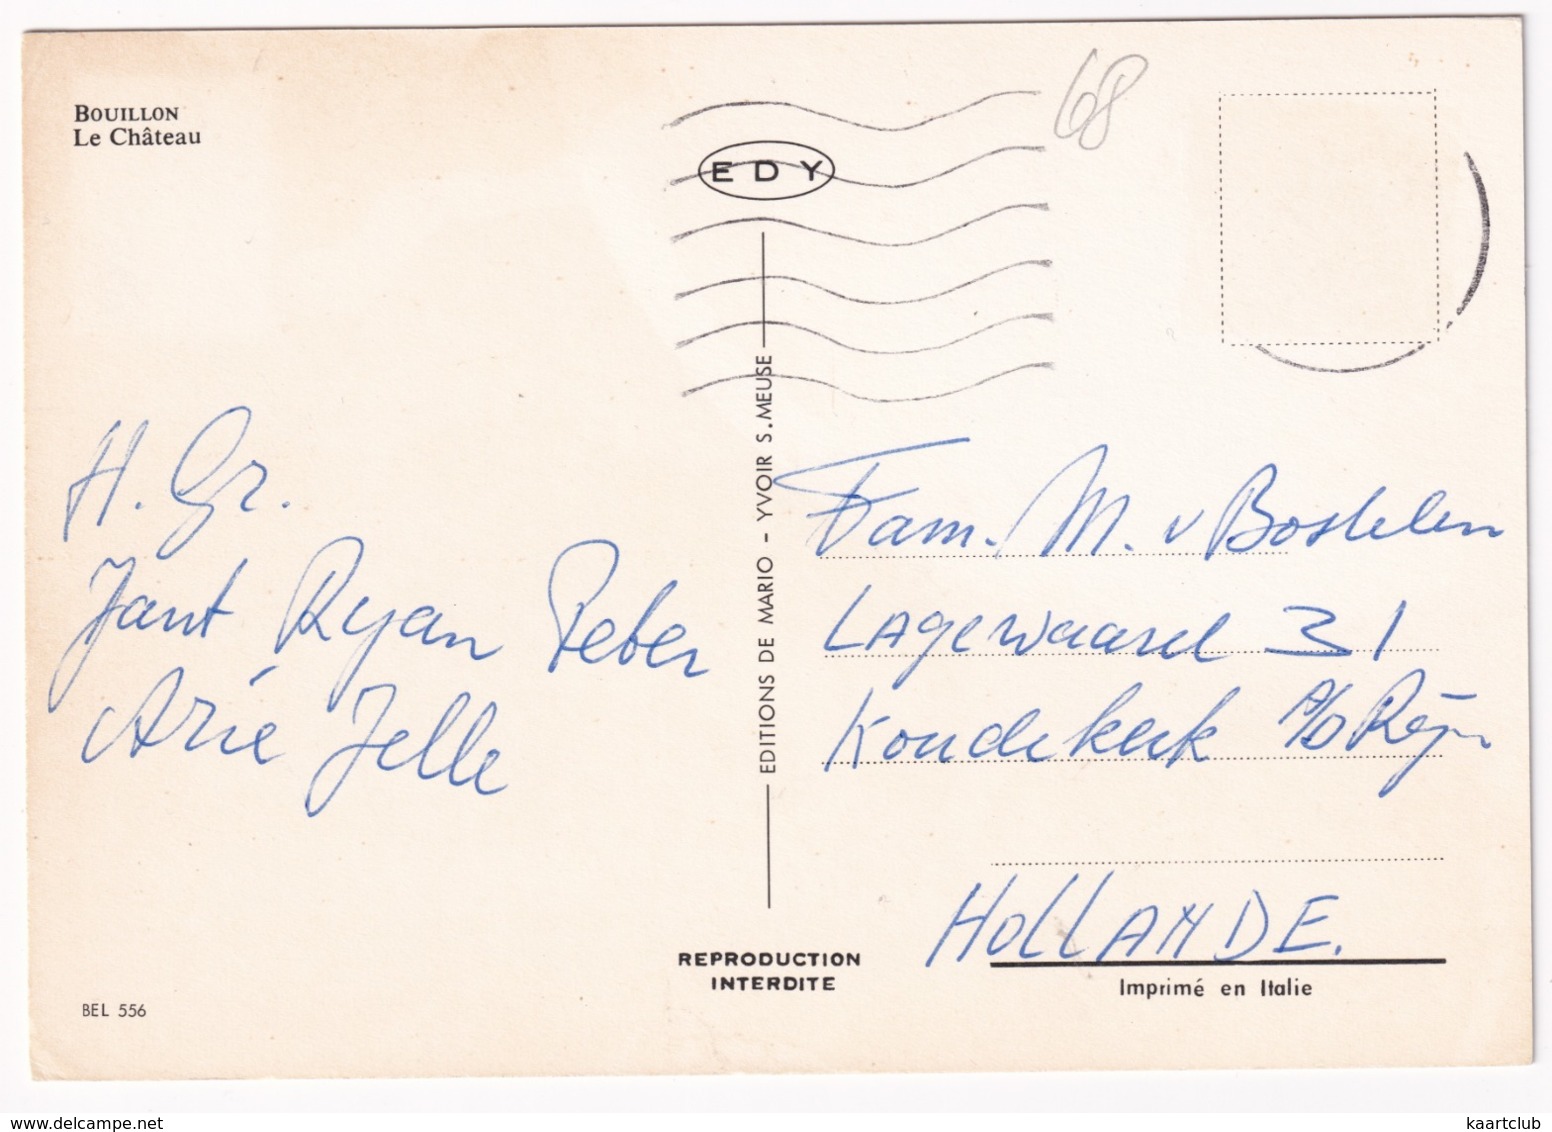 BOUILLON
Le Château
68
EDY
EDITIONS DE MARIO - YVOIR S.MEUSE
H. Gr.
Jant Ryan Peter
Arie Jelle
Fam. M. v Bostelen
Lagewaard 31
Koudekerk a/d Rijn
HOLLANDE.
REPRODUCTION
INTERDITE
Imprimé en Italie
BEL 556
delcampe.net
kaartclub